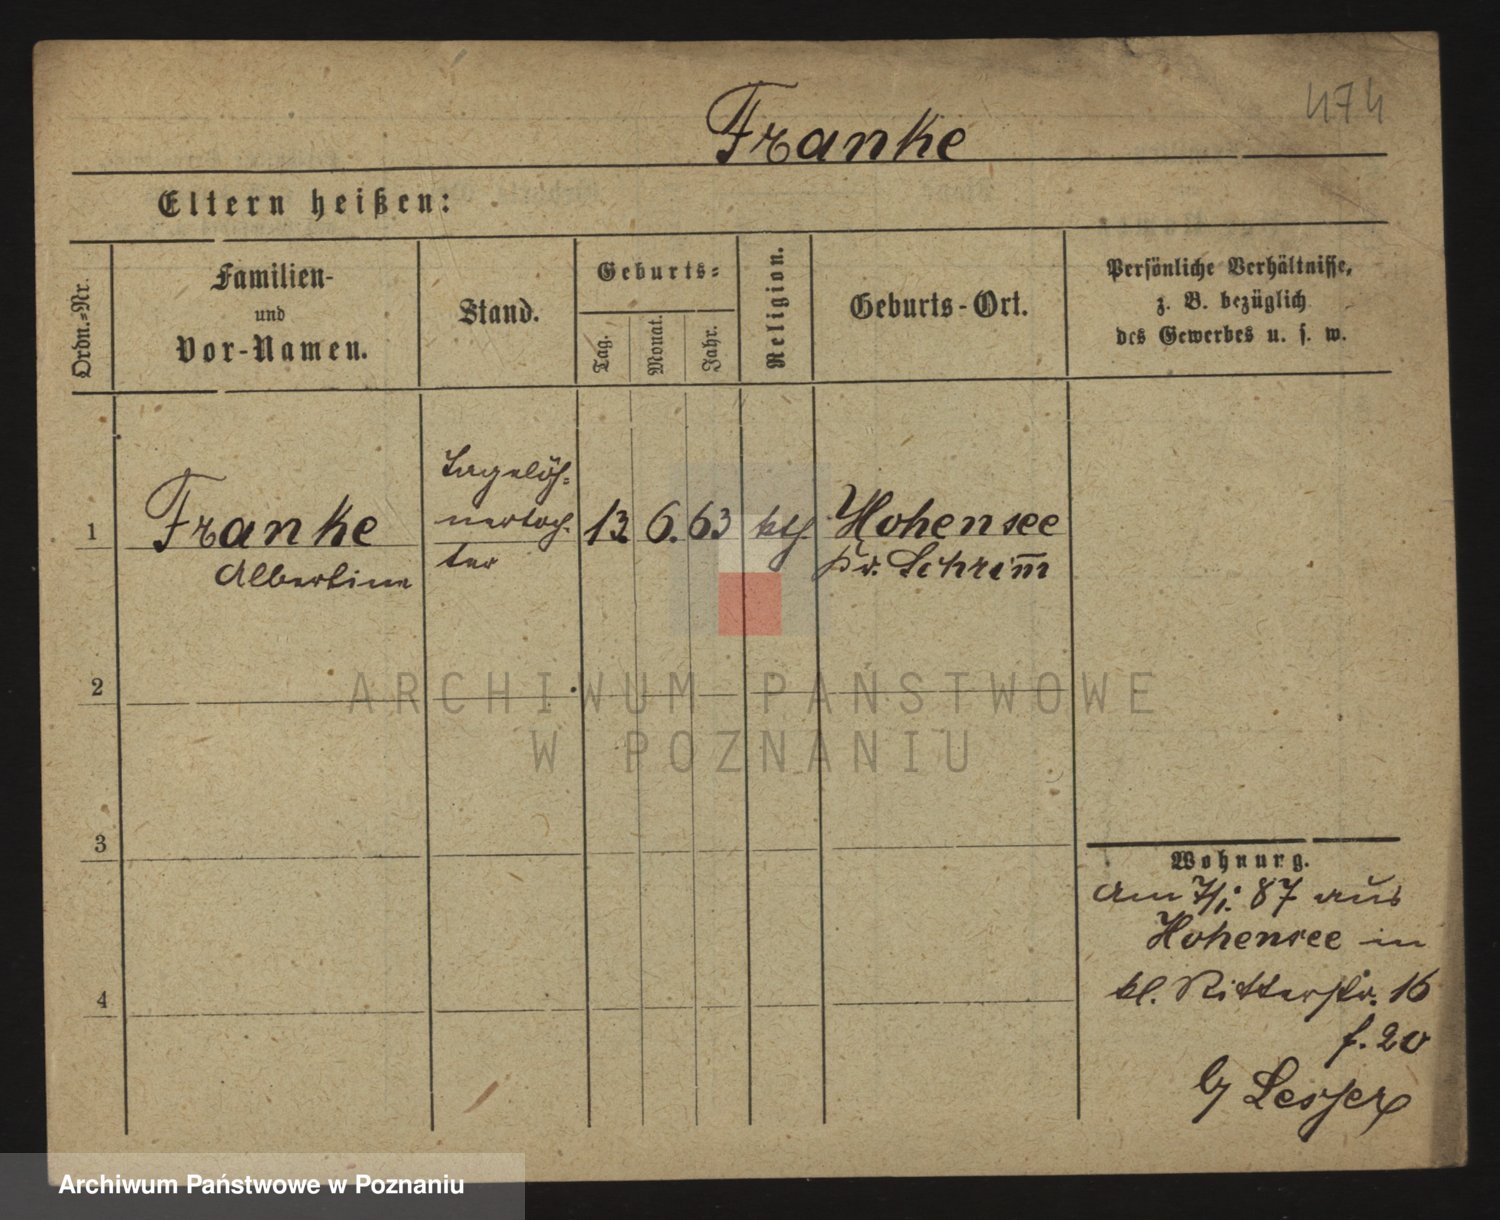 474
Franke
Eltern heißen:
Ordn.-Nr.
Familien-
und
Vor-Namen.
Stand.
Geburts-
Tag.
Monat.
Jahr.
Religion.
Geburts-Ort.
Persönliche Verhältnisse,
z. B. bezüglich
des Gewerbes u. s. w.
1
Franke
Albertine
Tagelöh-
nertoch-
ter
13
6.
63
kth.
Hohensee
Kr. Schrim̅
2
3
4
Wohnung.
Am 7/1. 87 aus
Hohensee in
kl. Ritterstr. 16
f. 20
by Lesser
ARCHIWUM PAŃSTWOWE
W POZNANIU
Archiwum Państwowe w Poznaniu